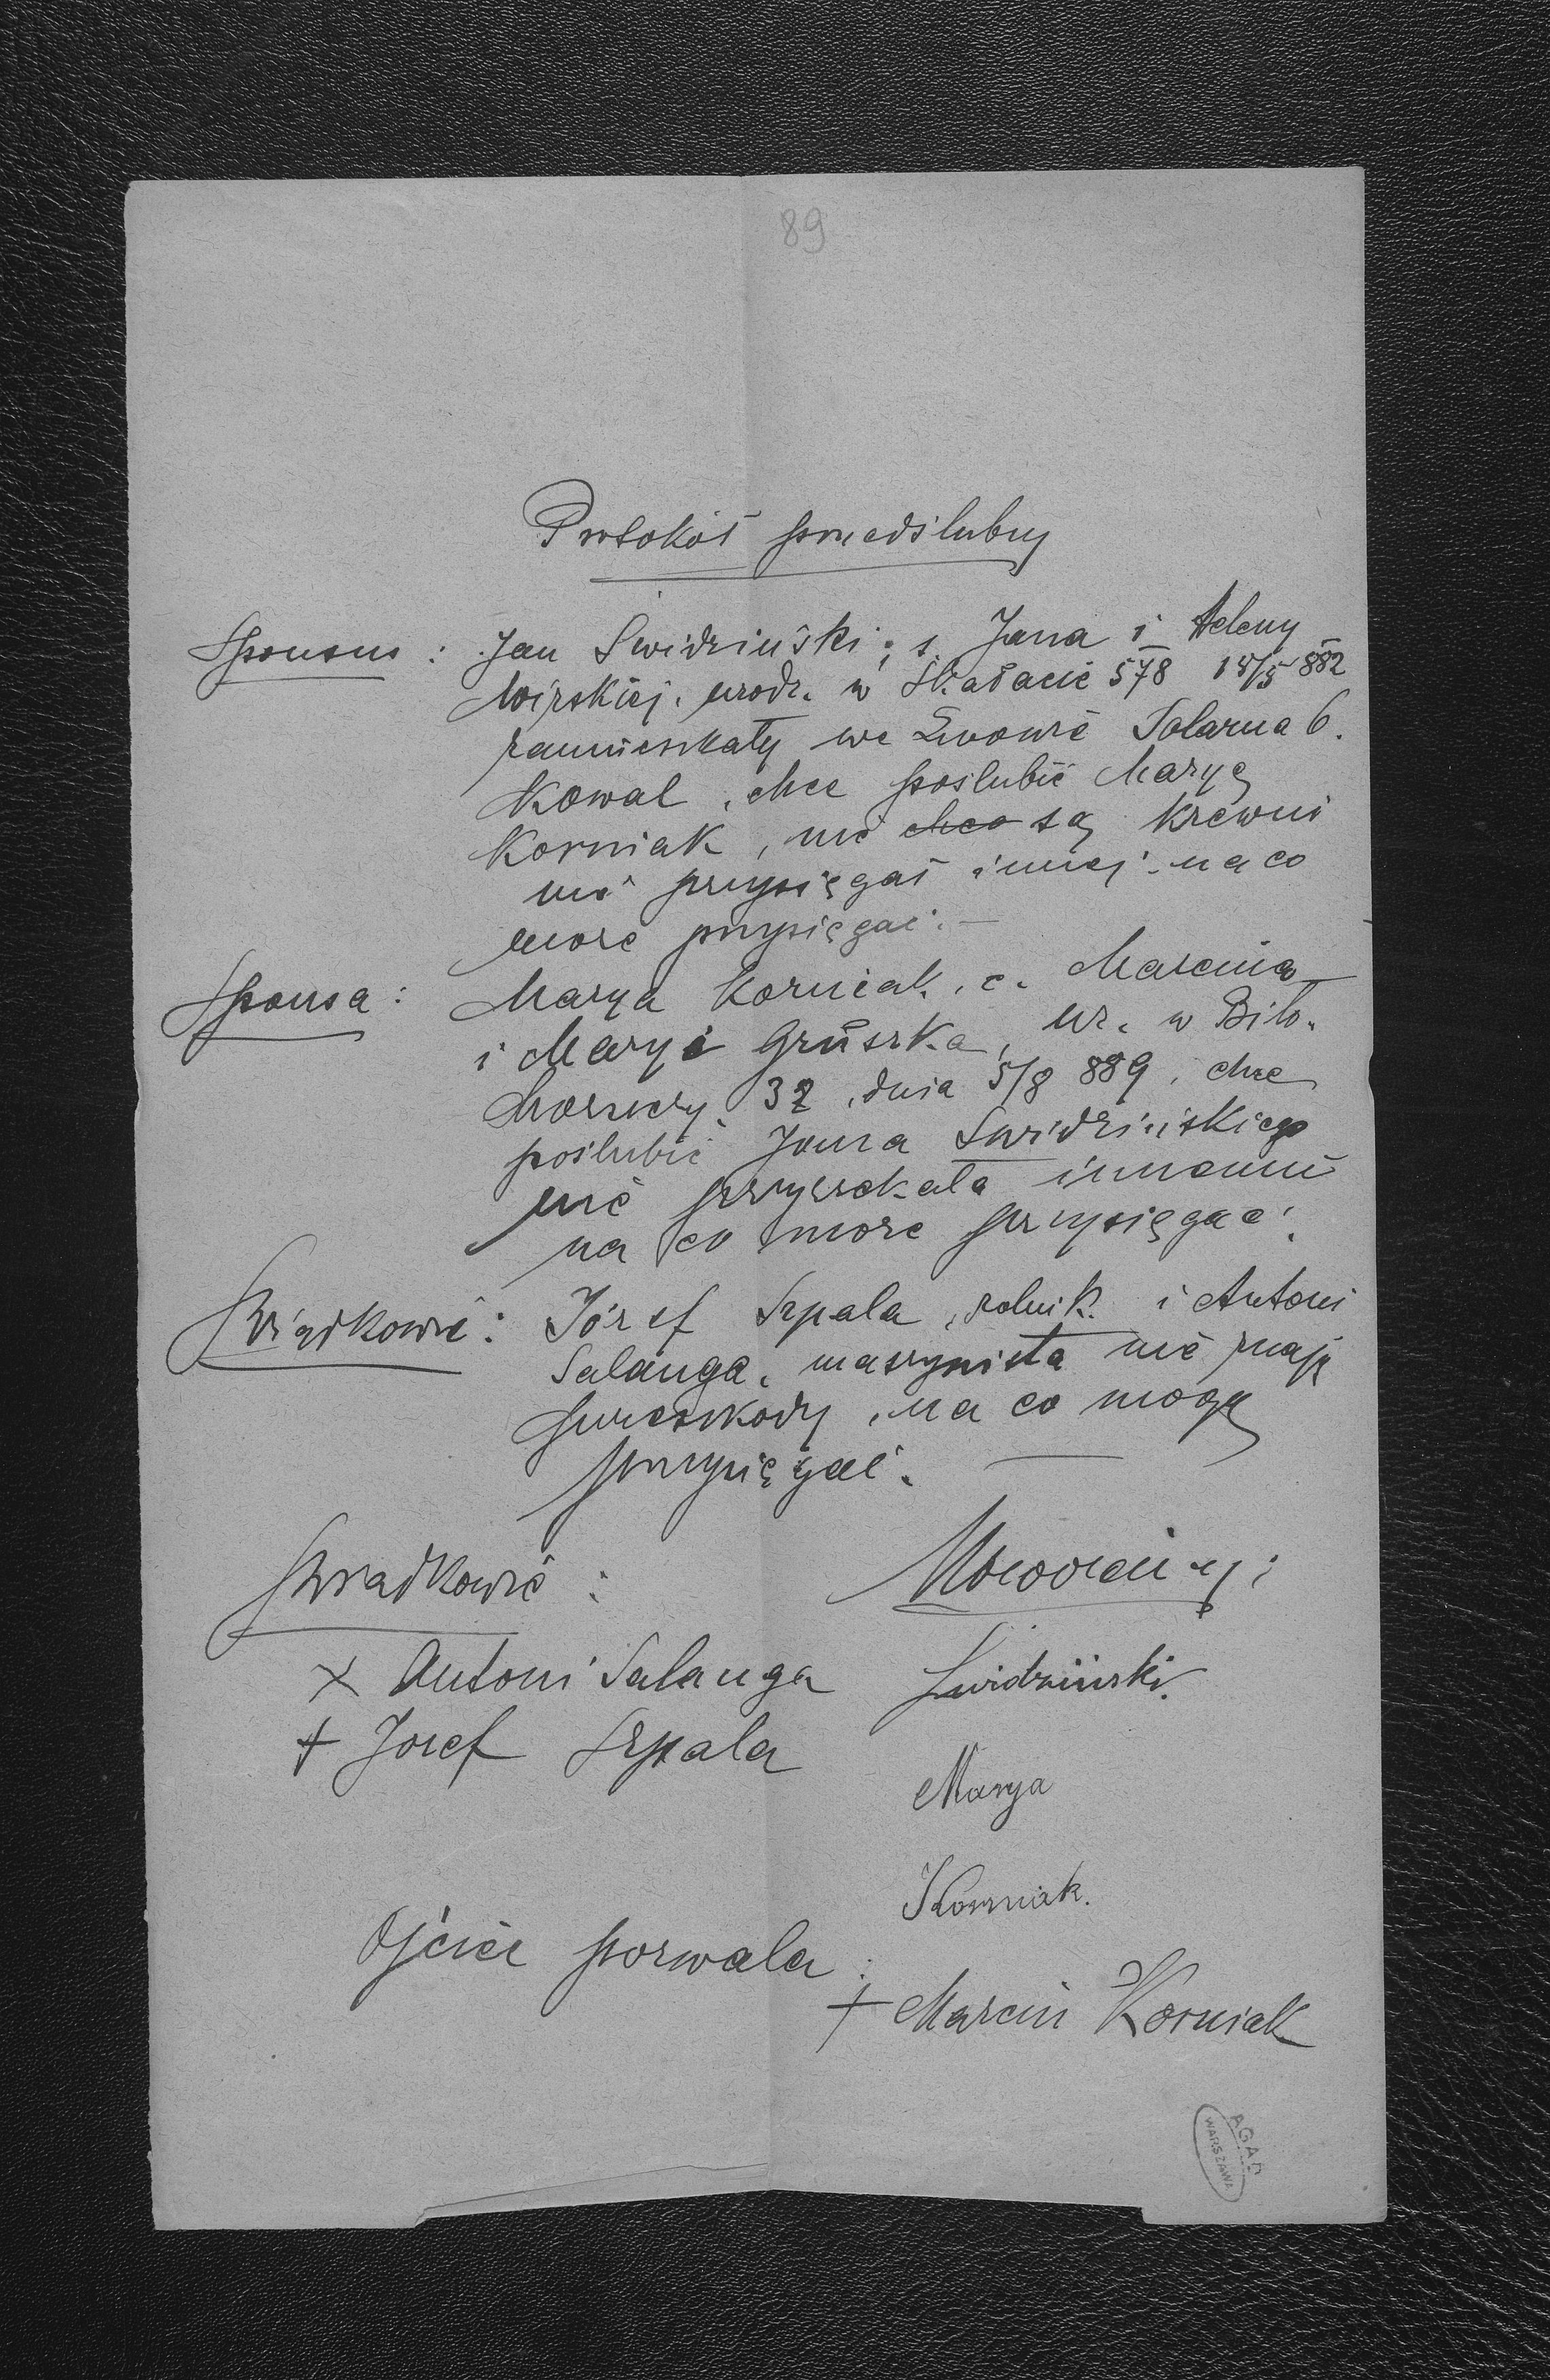 89
Protokół przedślubny
Sponsus : Jan Swidziński ; s. Jana i Heleny
Mirskiej. urodz. w Skałacie 578 15/5 882
zamieszkały we Lwowie Solarna 6.
Kowal, chce poslubić Maryę
Korniak, nie chce są krewni
nie przysięgał innej. na co
może przysięgać. —
Sponsa : Marya Korniak. c. Marcina
i Maryi Gruszka, ur. w Biło-
horszczy. 32, dnia 5/8 889, chce
poślubić Jana Swidzińskiego
nie przyrzekała innemu
na co może przysięgać.
Swiadkowie : Józef Szpala, rolnik. i Antoni
Salanga, maszynista nie znają
przeszkody, na co mogą
przysięgać. —
Swiadkowie : Nowożeńcy :
x Antoni Salanga Swidziński.
+ Jozef Szpala
Marya
Korniak.
Ojciec pozwala :
+ Marcin Korniak
AGAD
WARSZAWA